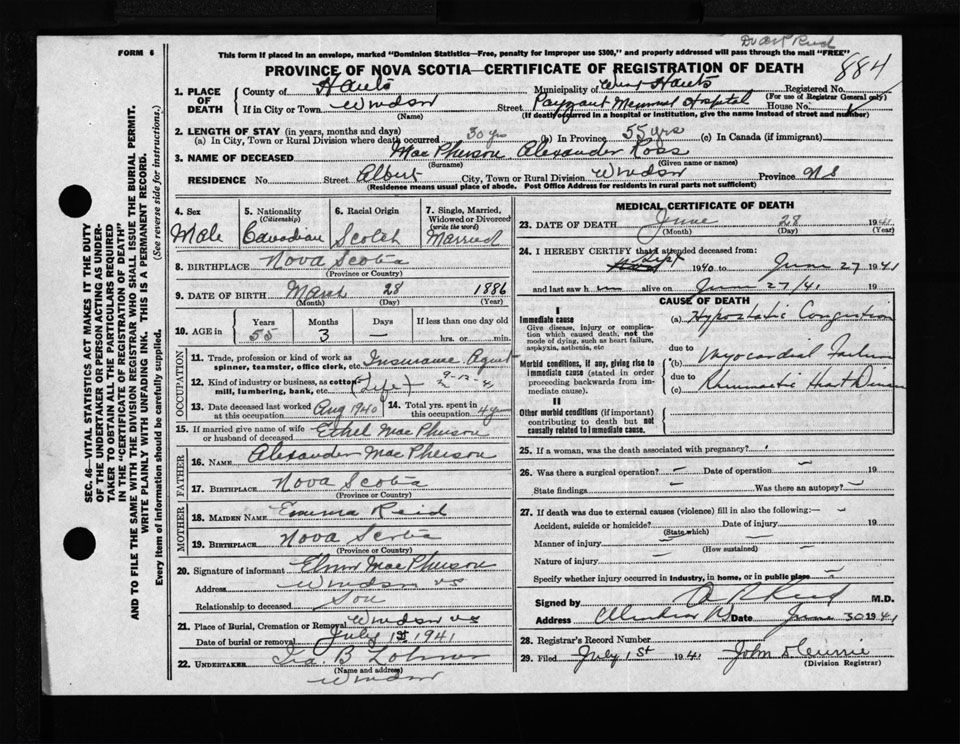 FORM 6
Dr A R Reid
This form if placed in an envelope, marked "Dominion Statistics—Free, penalty for improper use $300," and properly addressed will pass through the mail "FREE"
884
PROVINCE OF NOVA SCOTIA—CERTIFICATE OF REGISTRATION OF DEATH
1. PLACE OF DEATH
County of Hants Municipality of West Hants Registered No.
(For use of Registrar General only)
If in City or Town Windsor Street Payzant Memorial Hospital House No.
(Name) (If death occurred in a hospital or institution, give the name instead of street and number)
2. LENGTH OF STAY (in years, months and days)
(a) In City, Town or Rural Division where death occurred 30 yrs (b) In Province 55 yrs (c) In Canada (if immigrant)
3. NAME OF DECEASED MacPherson Alexander Ross
(Surname) (Given name or names)
RESIDENCE No. Street Albert City, Town or Rural Division Windsor Province NS
(Residence means usual place of abode. Post Office Address for residents in rural parts not sufficient)
4. Sex
Male
5. Nationality
(Citizenship)
Canadian
6. Racial Origin
Scotch
7. Single, Married, Widowed or Divorced
(write the word)
Married
8. BIRTHPLACE Nova Scotia
(Province or Country)
9. DATE OF BIRTH March 28 1886
(Month) (Day) (Year)
10. AGE in
Years Months Days If less than one day old
55 3 hrs. or min.
OCCUPATION
11. Trade, profession or kind of work as spinner, teamster, office clerk, etc. Insurance Agent
12. Kind of industry or business, as cotton mill, lumbering, bank, etc. (Life)
13. Date deceased last worked at this occupation Aug 1940
14. Total yrs. spent in this occupation 4 yr
15. If married give name of wife or husband of deceased Ethel MacPherson
FATHER
16. NAME Alexander MacPherson
17. BIRTHPLACE Nova Scotia
(Province or Country)
MOTHER
18. MAIDEN NAME Emma Reid
19. BIRTHPLACE Nova Scotia
(Province or Country)
20. Signature of informant Elmer MacPherson
Address Windsor NS
Relationship to deceased Son
21. Place of Burial, Cremation or Removal Windsor NS
Date of burial or removal July 1st 1941
22. UNDERTAKER Ira B
Windsor
MEDICAL CERTIFICATE OF DEATH
23. DATE OF DEATH June 28 1941
(Month) (Day) (Year)
24. I HEREBY CERTIFY that I attended deceased from:
Sept 1940 to June 27 1941
and last saw him alive on June 27/41
CAUSE OF DEATH
I
Immediate cause
Give disease, injury or complication which caused death, not the mode of dying, such as heart failure, asphyxia, asthenia, etc
(a) Hypostatic Congestion
due to
Morbid conditions, if any, giving rise to immediate cause (stated in order proceeding backwards from immediate cause).
(b) Myocardial Failure
due to
(c) Rheumatic Heart Disease
II
Other morbid conditions (if important) contributing to death but not causally related to immediate cause.
25. If a woman, was the death associated with pregnancy?
26. Was there a surgical operation? — Date of operation — 19
State findings — Was there an autopsy? —
27. If death was due to external causes (violence) fill in also the following:—
Accident, suicide or homicide? Date of injury 19
(State which)
Manner of injury
(How sustained)
Nature of injury
Specify whether injury occurred in industry, in home, or in public place
Signed by A R Reid M.D.
Address Windsor NS Date June 30 1941
28. Registrar's Record Number
29. Filed July 1st 1941 John D Currie
(Division Registrar)
SEC. 46—VITAL STATISTICS ACT MAKES IT THE DUTY OF THE UNDERTAKER OR PERSON ACTING AS UNDERTAKER TO OBTAIN ALL THE PARTICULARS REQUIRED IN THE "CERTIFICATE OF REGISTRATION OF DEATH" AND TO FILE THE SAME WITH THE DIVISION REGISTRAR WHO SHALL ISSUE THE BURIAL PERMIT.
WRITE PLAINLY WITH UNFADING INK. THIS IS A PERMANENT RECORD.
Every item of information should be carefully supplied. (See reverse side for instructions.)